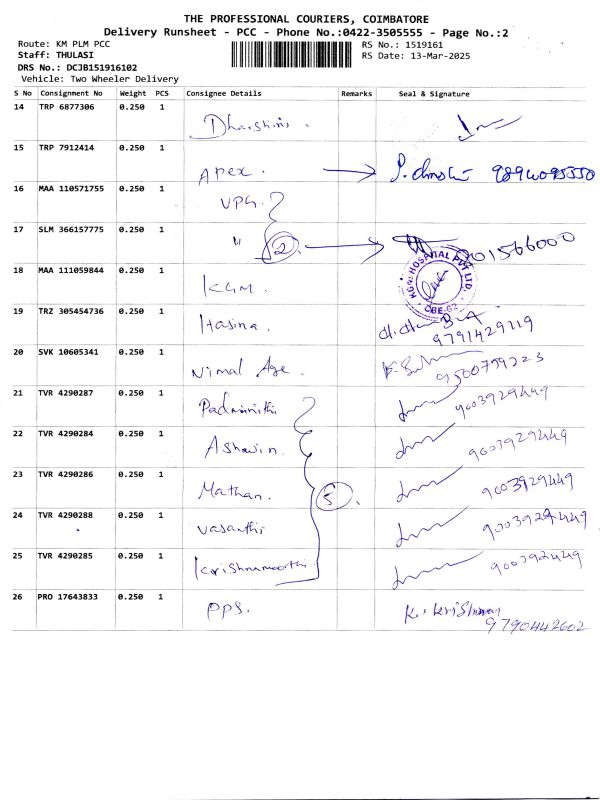 THE PROFESSIONAL COURIERS, COIMBATORE
Delivery Runsheet - PCC - Phone No.:0422-3505555 - Page No.:2
Route: KM PLM PCC RS No.: 1519161
Staff: THULASI RS Date: 13-Mar-2025
DRS No.: DCJB151916102
Vehicle: Two Wheeler Delivery
S No Consignment No Weight PCS Consignee Details Remarks Seal & Signature
14 TRP 6877306 0.250 1
15 TRP 7912414 0.250 1 Apex.
16 MAA 110571755 0.250 1 UPG.
17 SLM 366157775 0.250 1 " 2
18 MAA 111059844 0.250 1 KGM. HOSPITAL PVT LTD. CBE-62
19 TRZ 305454736 0.250 1 Hasina. 9791429119
20 SVK 10605341 0.250 1 Nirmal Age. 9500759223
21 TVR 4290287 0.250 1 9003929449
22 TVR 4290284 0.250 1 Ashwin. 9003929449
23 TVR 4290286 0.250 1 Mathan. 5. 9003929449
24 TVR 4290288 0.250 1 Vasanthi 9003929449
25 TVR 4290285 0.250 1 Krishnamoorthi 9003929449
26 PRO 17643833 0.250 1 PPS. K. Krishnan
9790442602